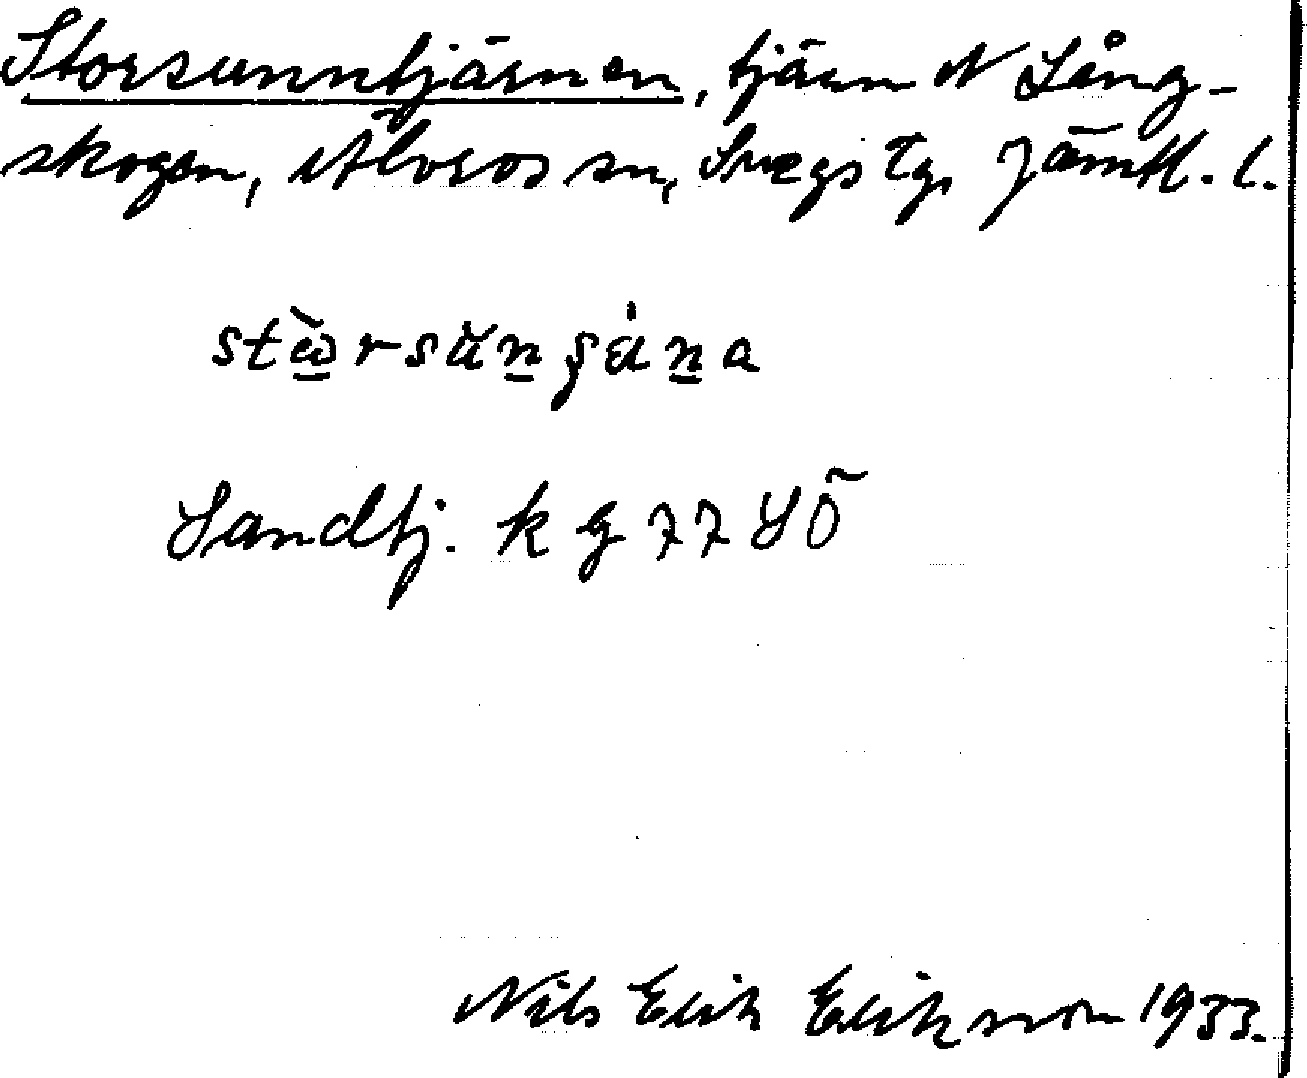 Storsunntjärnen, tjärn N Lång-
skogen, Älvros sn, Svegs tg, Jämtl. l.
Sandtj. k g 77 Y Ö
Nils Erik Eriksson 1933.